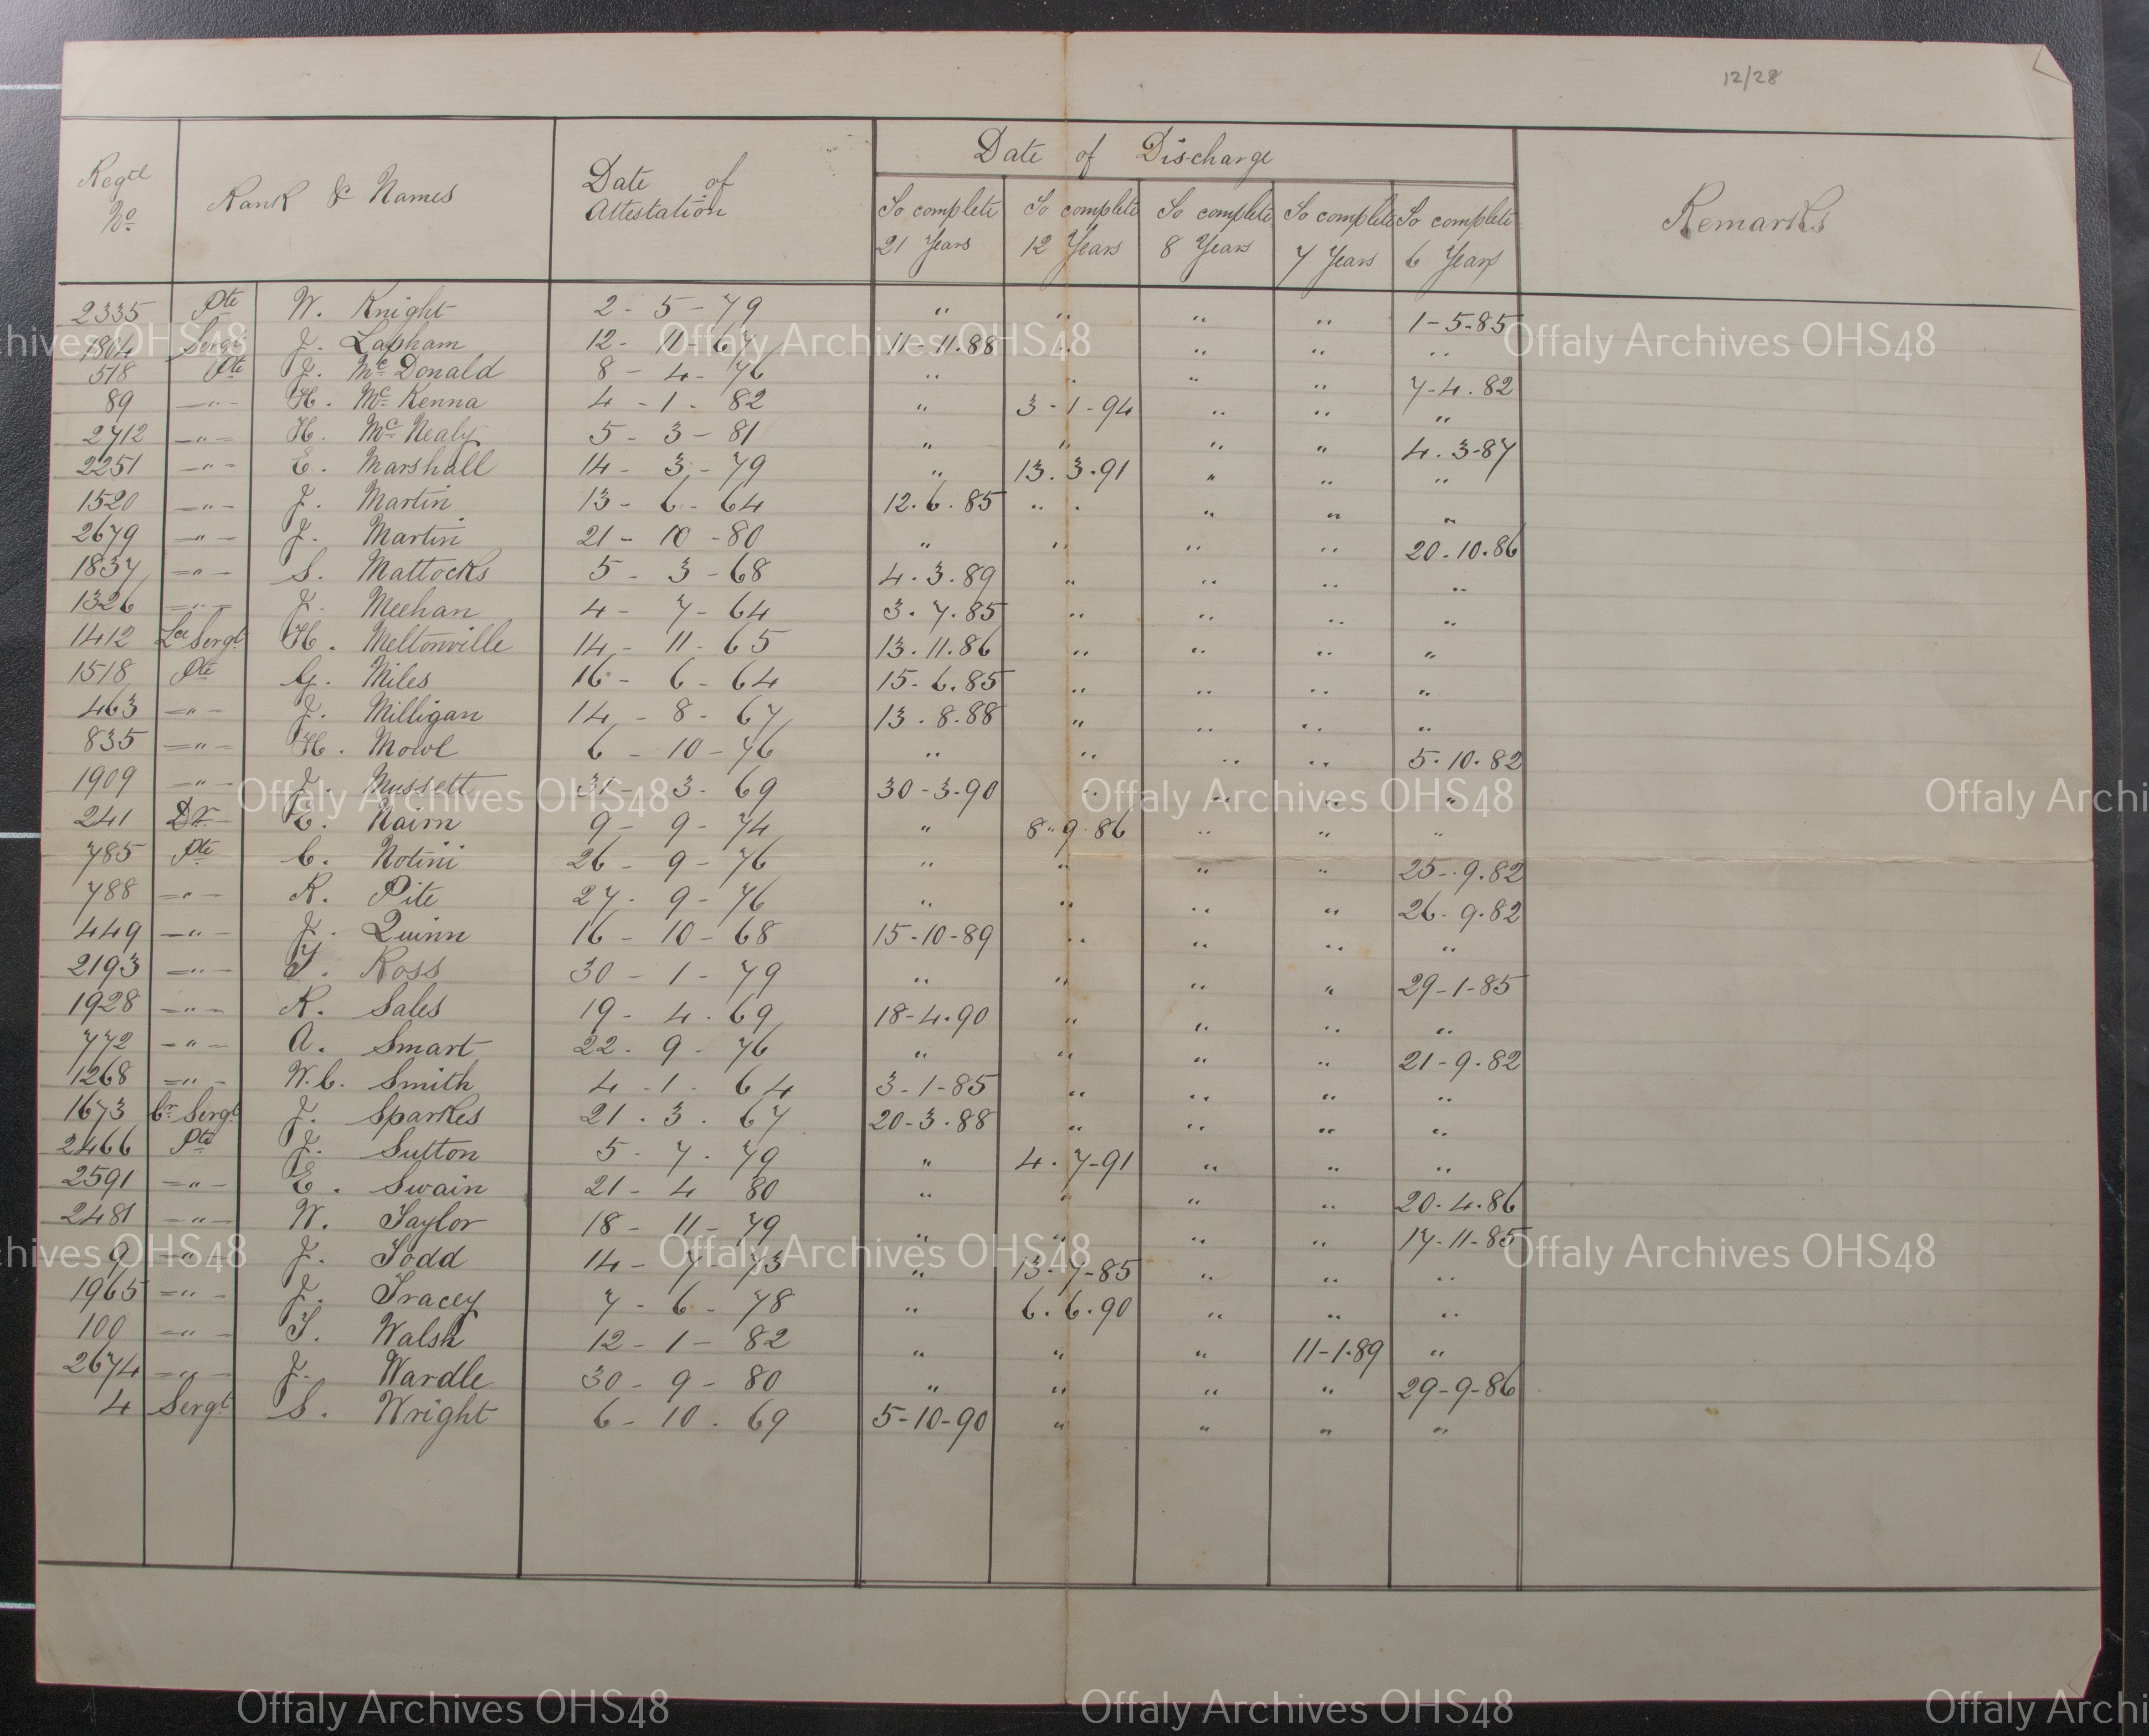 12/28
Regtl No Rank & Names Date of Attestation Date of Discharge Remarks
To complete 21 Years To complete 12 Years To complete 8 Years To complete 7 Years To complete 6 Years
2335 Pte W. Knight 2 - 5 - 79 " " " " 1-5-85
1804 Sergt J. Lapham 12 - 11 - 67 11-11.88 " " " "
518 Pte J. McDonald 8 - 4 - 76 " " " " 7-4.82
89 -"- H. McKenna 4 - 1 - 82 " 3-1-94 " " "
2712 -"- H. McNealy 5 - 3 - 81 " " " " 4.3-87
2251 -"- E. Marshall 14 - 3 - 79 " 13.3.91 " " "
1520 -"- J. Martin 13 - 6 - 64 12.6.85 " " " "
2679 -"- J. Martin 21 - 10 - 80 " " " " 20.10.86
1837 -"- S. Mattocks 5 - 3 - 68 4.3.89 " " " "
1326 -"- J. Meehan 4 - 7 - 64 3.7.85 " " " "
1412 Lce Sergt H. Meltonville 14 - 11 - 65 13.11.86 " " " "
1518 Pte G. Miles 16 - 6 - 64 15-6.85 " " " "
463 -"- J. Milligan 14 - 8 - 67 13.8.88 " " " "
835 -"- H. Mowl 6 - 10 - 76 " " " " 5.10.82
1909 -"- J. Mussett 31 - 3 - 69 30-3-90 " " " "
241 Dr E. Nairn 9 - 9 - 74 " 8"9.86 " " "
785 Pte C. Notini 26 - 9 - 76 " " " " 25-.9.82
788 -"- R. Pite 27 - 9 - 76 " " " " 26-9.82
449 -"- J. Quinn 16 - 10 - 68 15-10-89 " " " "
2193 -"- T. Ross 30 - 1 - 79 " " " " 29-1-85
1928 -"- R. Sales 19 - 4 . 69 18-4.90 " " " "
772 -"- A. Smart 22 - 9 - 76 " " " " 21-9.82
1268 -"- W.C. Smith 4 - 1 - 64 3-1-85 " " " "
1673 Cr Sergt J. Sparkes 21 . 3 . 67 20-3.88 " " " "
2466 Pte J. Sutton 5 - 7 . 79 " 4.7-91 " " "
2591 -"- E. Swain 21 - 4 80 " " " " 20.4.86
2481 -"- W. Taylor 18 - 11 - 79 " " " " 17-11-85
9 -"- J. Todd 14 - 7 - 73 " 13-7-85 " " "
1965 -"- J. Tracey 7 - 6 - 78 " 6.6.90 " " "
100 -"- T. Walsh 12 - 1 - 82 " " " 11-1.89 "
2674 -"- J. Wardle 30 - 9 - 80 " " " " 29-9-86
4 Sergt S. Wright 6 - 10 . 69 5-10-90 " " " "
Offaly Archives OHS48